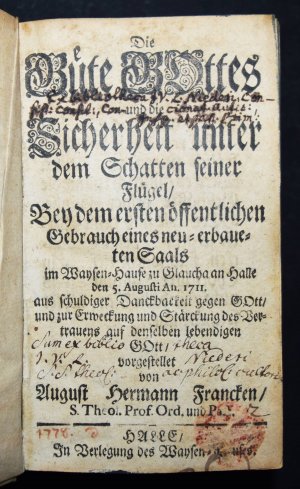 Die
Güte GOttes
und die
Sicherheit unter
dem Schatten seiner
Flügel/
Bey dem ersten öffentlichen
Gebrauch eines neu-erbaue-
ten Saals
im Waysen-Hause zu Glaucha an Halle
den 5. Augusti An. 1711.
aus schuldiger Danckbarkeit gegen GOtt/
und zur Erweckung und Stärckung des Ver-
trauens auf denselben lebendigen
GOtt/
vorgestellet
von
August Hermann Francken/
S. Theol. Prof. Ord. und
1778.
HALLE/
In Verlegung des Waysen-